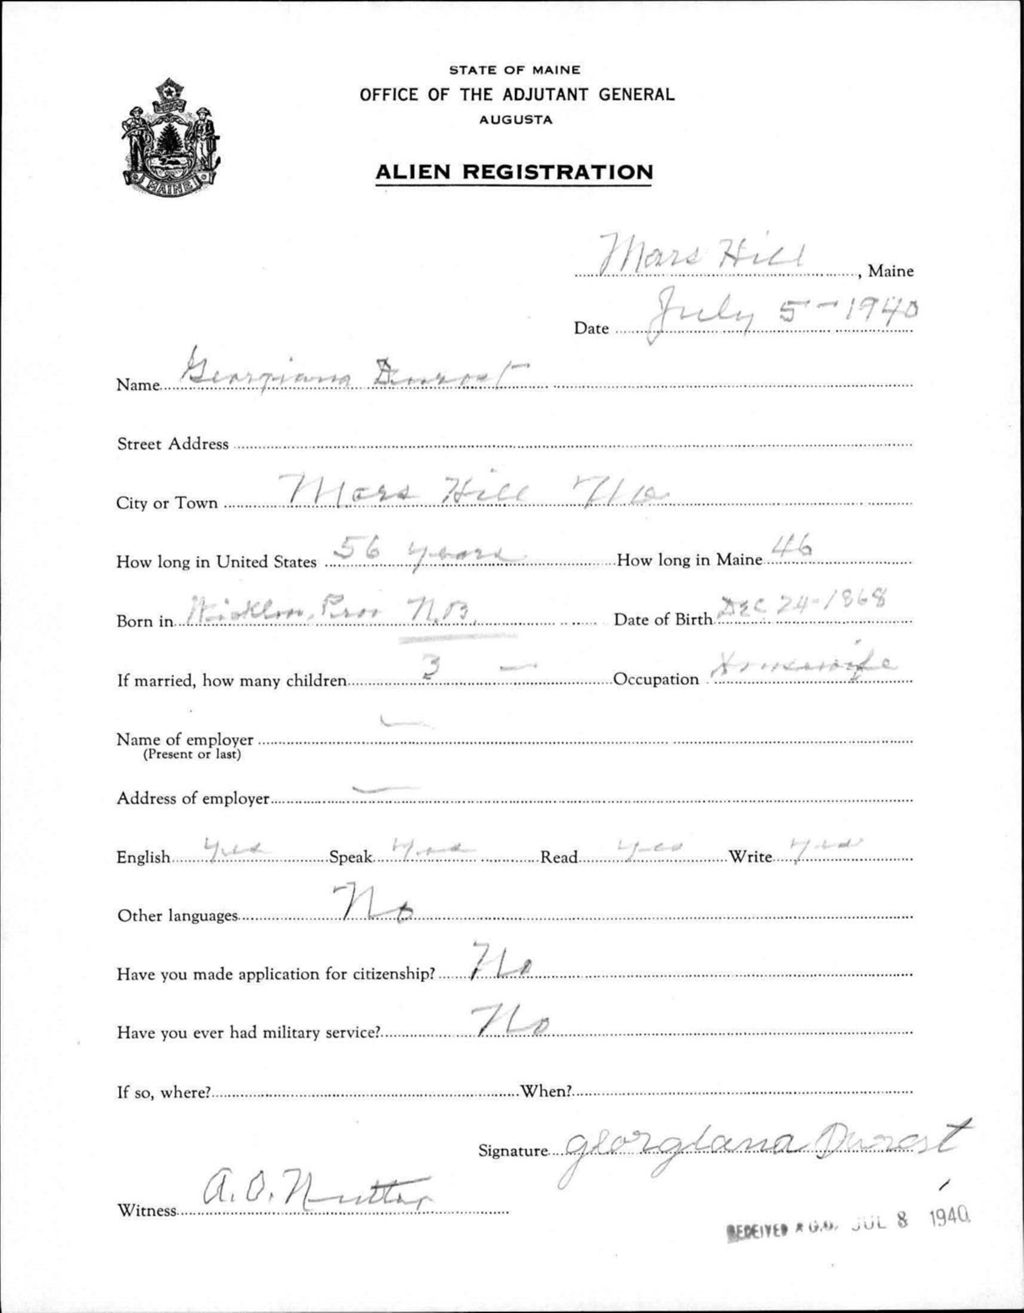 STATE OF MAINE
OFFICE OF THE ADJUTANT GENERAL
AUGUSTA
ALIEN REGISTRATION
MAINE
Mars Hill, Maine
Date July 5-1940
Name Georgiana Durost
Street Address
City or Town Mars Hill Me
How long in United States 56 years How long in Maine 46
Born in Wicklow, Prov N.B. Date of Birth Dec 24-1868
If married, how many children 3 - Occupation Housewife
Name of employer -
(Present or last)
Address of employer -
English Yes Speak Yes Read Yes Write Yes
Other languages No
Have you made application for citizenship? No
Have you ever had military service? No
If so, where? When?
Signature Georgiana Durost
Witness A. O. Nutter
RECEIVED A.G.O. JUL 8 1940